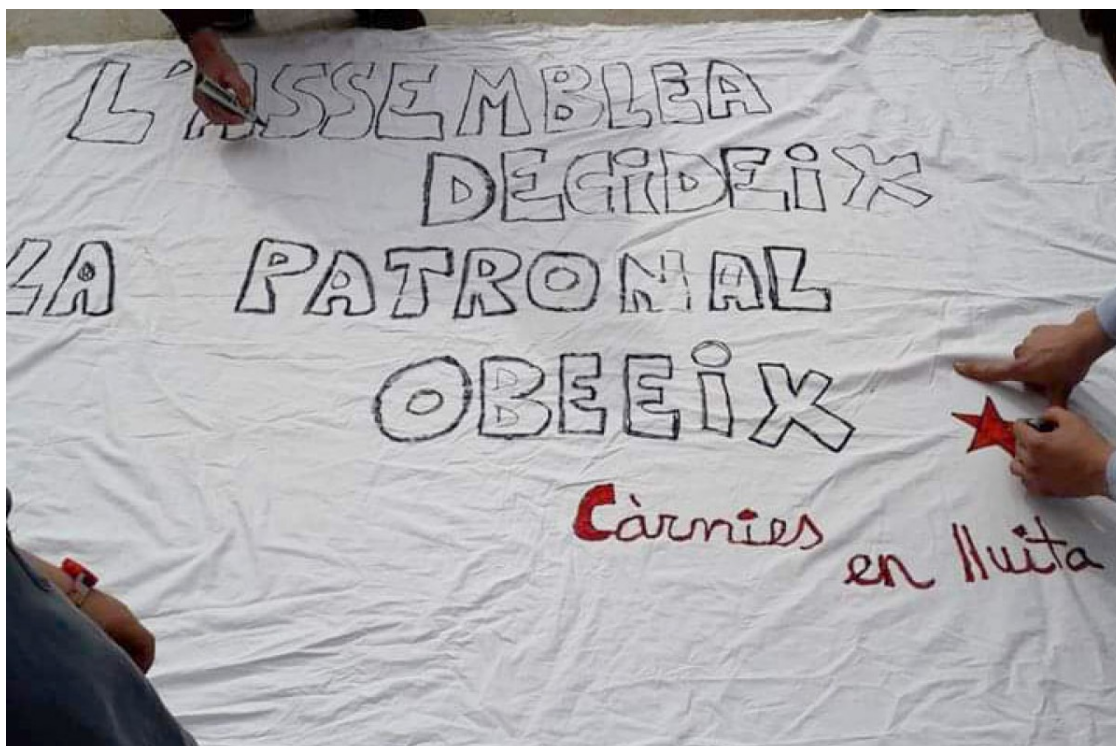 L'ASSEMBLEA
DECiDEiX
LA PATRONAL
OBEEiX
Càrnies
en lluita